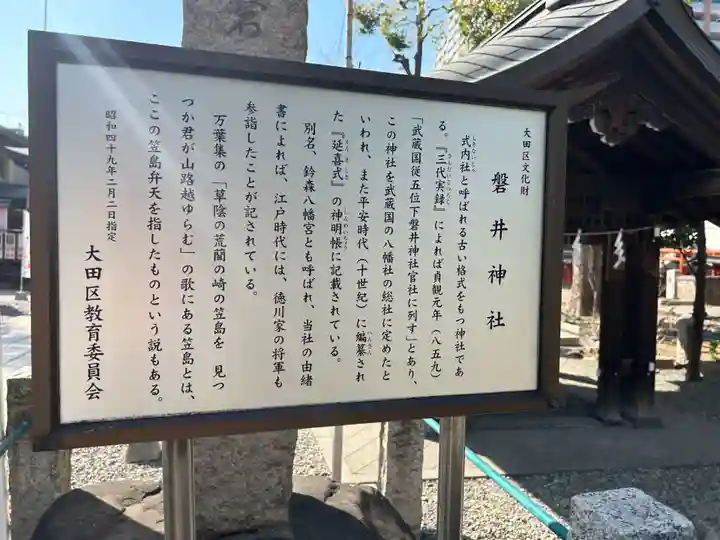 大田区文化財
磐井神社
式内社と呼ばれる古い格式をもつ神社であ
る。『三代実録』によれば貞観元年(八五九)
「武蔵国従五位下磐井神社官社に列す」とあり、
この神社を武蔵国の八幡社の総社に定めたと
いわれ、また平安時代(十世紀)に編纂され
た『延喜式』の神明帳に記載されている。
別名、鈴森八幡宮とも呼ばれ、当社の由緒
書によれば、江戸時代には、徳川家の将軍も
参詣したことが記されている。
万葉集の「草陰の荒藺の崎の笠島を 見つ
つか君が山路越ゆらむ」の歌にある笠島とは、
ここの笠島弁天を指したものという説もある。
昭和四十九年二月二日指定
大田区教育委員会